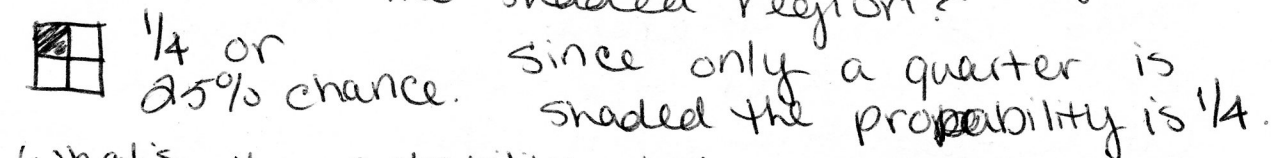 the shaded region?
1/4 or
25% chance.
since only a quarter is
shaded the probability is 1/4.
What's